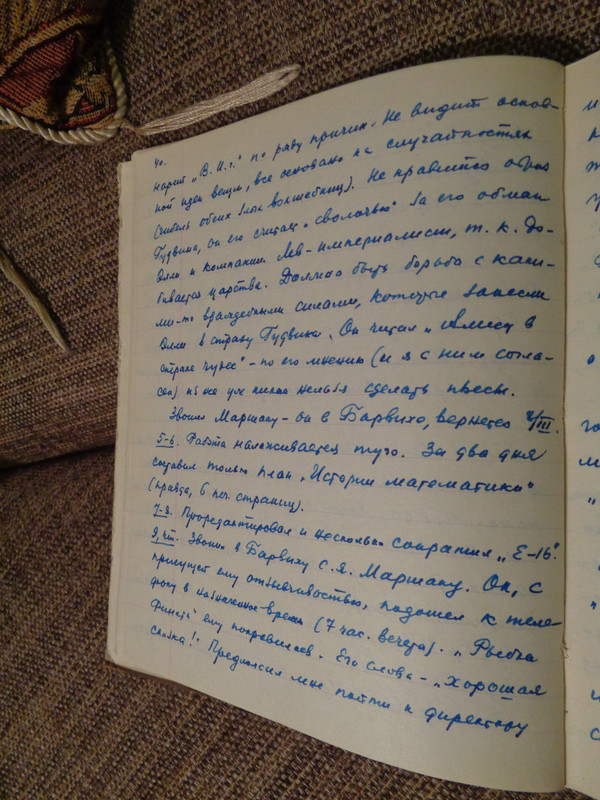 40.
наст „В. И. г." по ряду причин. Не видит основ-
ной идеи вещи, все основано на случайностях
(гибель обеих злых волшебниц). Не нравится образ
Гудвина, он его считает „сволочью" за его обман
Элли и компании. Лев-империалист, т. к. до-
бивается царства. Должна быть борьба с каки-
ми-то враждебными силами, которые занесли
Элли в страну Гудвина. Он читал „Алису в
стране чудес" - по его мнению (и я с ним согла-
сен) из нее уж никак нельзя сделать пьесы.
Звонил Маршаку - он в Барвихе, вернется 8/III.
5-6. Работа налаживается туго. За два дня
составил только план „Истории математики"
(правда, 6 печ. страниц).
7-8. Проредактировал и несколько сократил „Е-16".
9/III. Звонил в Барвиху С. Я. Маршаку. Он, с
присущей ему отзывчивостью, подошел к теле-
фону в назначенное время (7 час. вечера). „Рыбка
Финита" ему понравилась. Его слова - „хорошая
сказка!" Предложил мне пойти к директору